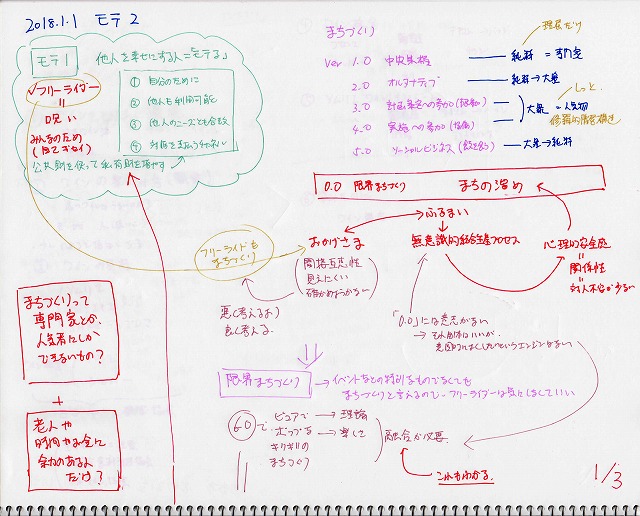 2018.1.1 モテ2
モテ1 他人を幸せにする人=「モテる」
① 自分のために
② 他人も利用可能
③ 他人のニーズとも合致
④ 対価を支払うわけない
✓フリーライダー
=
呪い
みんなのため
公共財を使って私有財を増やす
まちづくり
理屈だけ
ver 1.0 中央集権 — 純粋 = 専門家
2.0 オルタナティブ — 純粋→大量
しっと
3.0 計画策定への参加(協働)
大量 = 人気物
4.0 実施への参加(協働)
5.0 ソーシャルビジネス — 大量→純粋
0.0 限界まちづくり まちの温め
ふるまい
おかげさま
無意識的総合生産プロセス
心理的安全性
=
関係性
=
フリーライドも
まちづくり
間格互恵性
見えにくい
悪く考える
良く考える
まちづくりって
専門家とか、
人気者にしか
できないもの?
+
老人や
時間やお金に
余裕のある人
だけ?
「0.0」には意志がない
→ それ自体はいいが、
限界まちづくり
→イベントなどの特別なものでなくても
まちづくりと言えるので、フリーライダーは気にしなくていい
6.0で、ピュアで → 理論
ポップな → 楽しさ
ギリギリの
まちづくり
融合が必要
これもわかる。
1/3